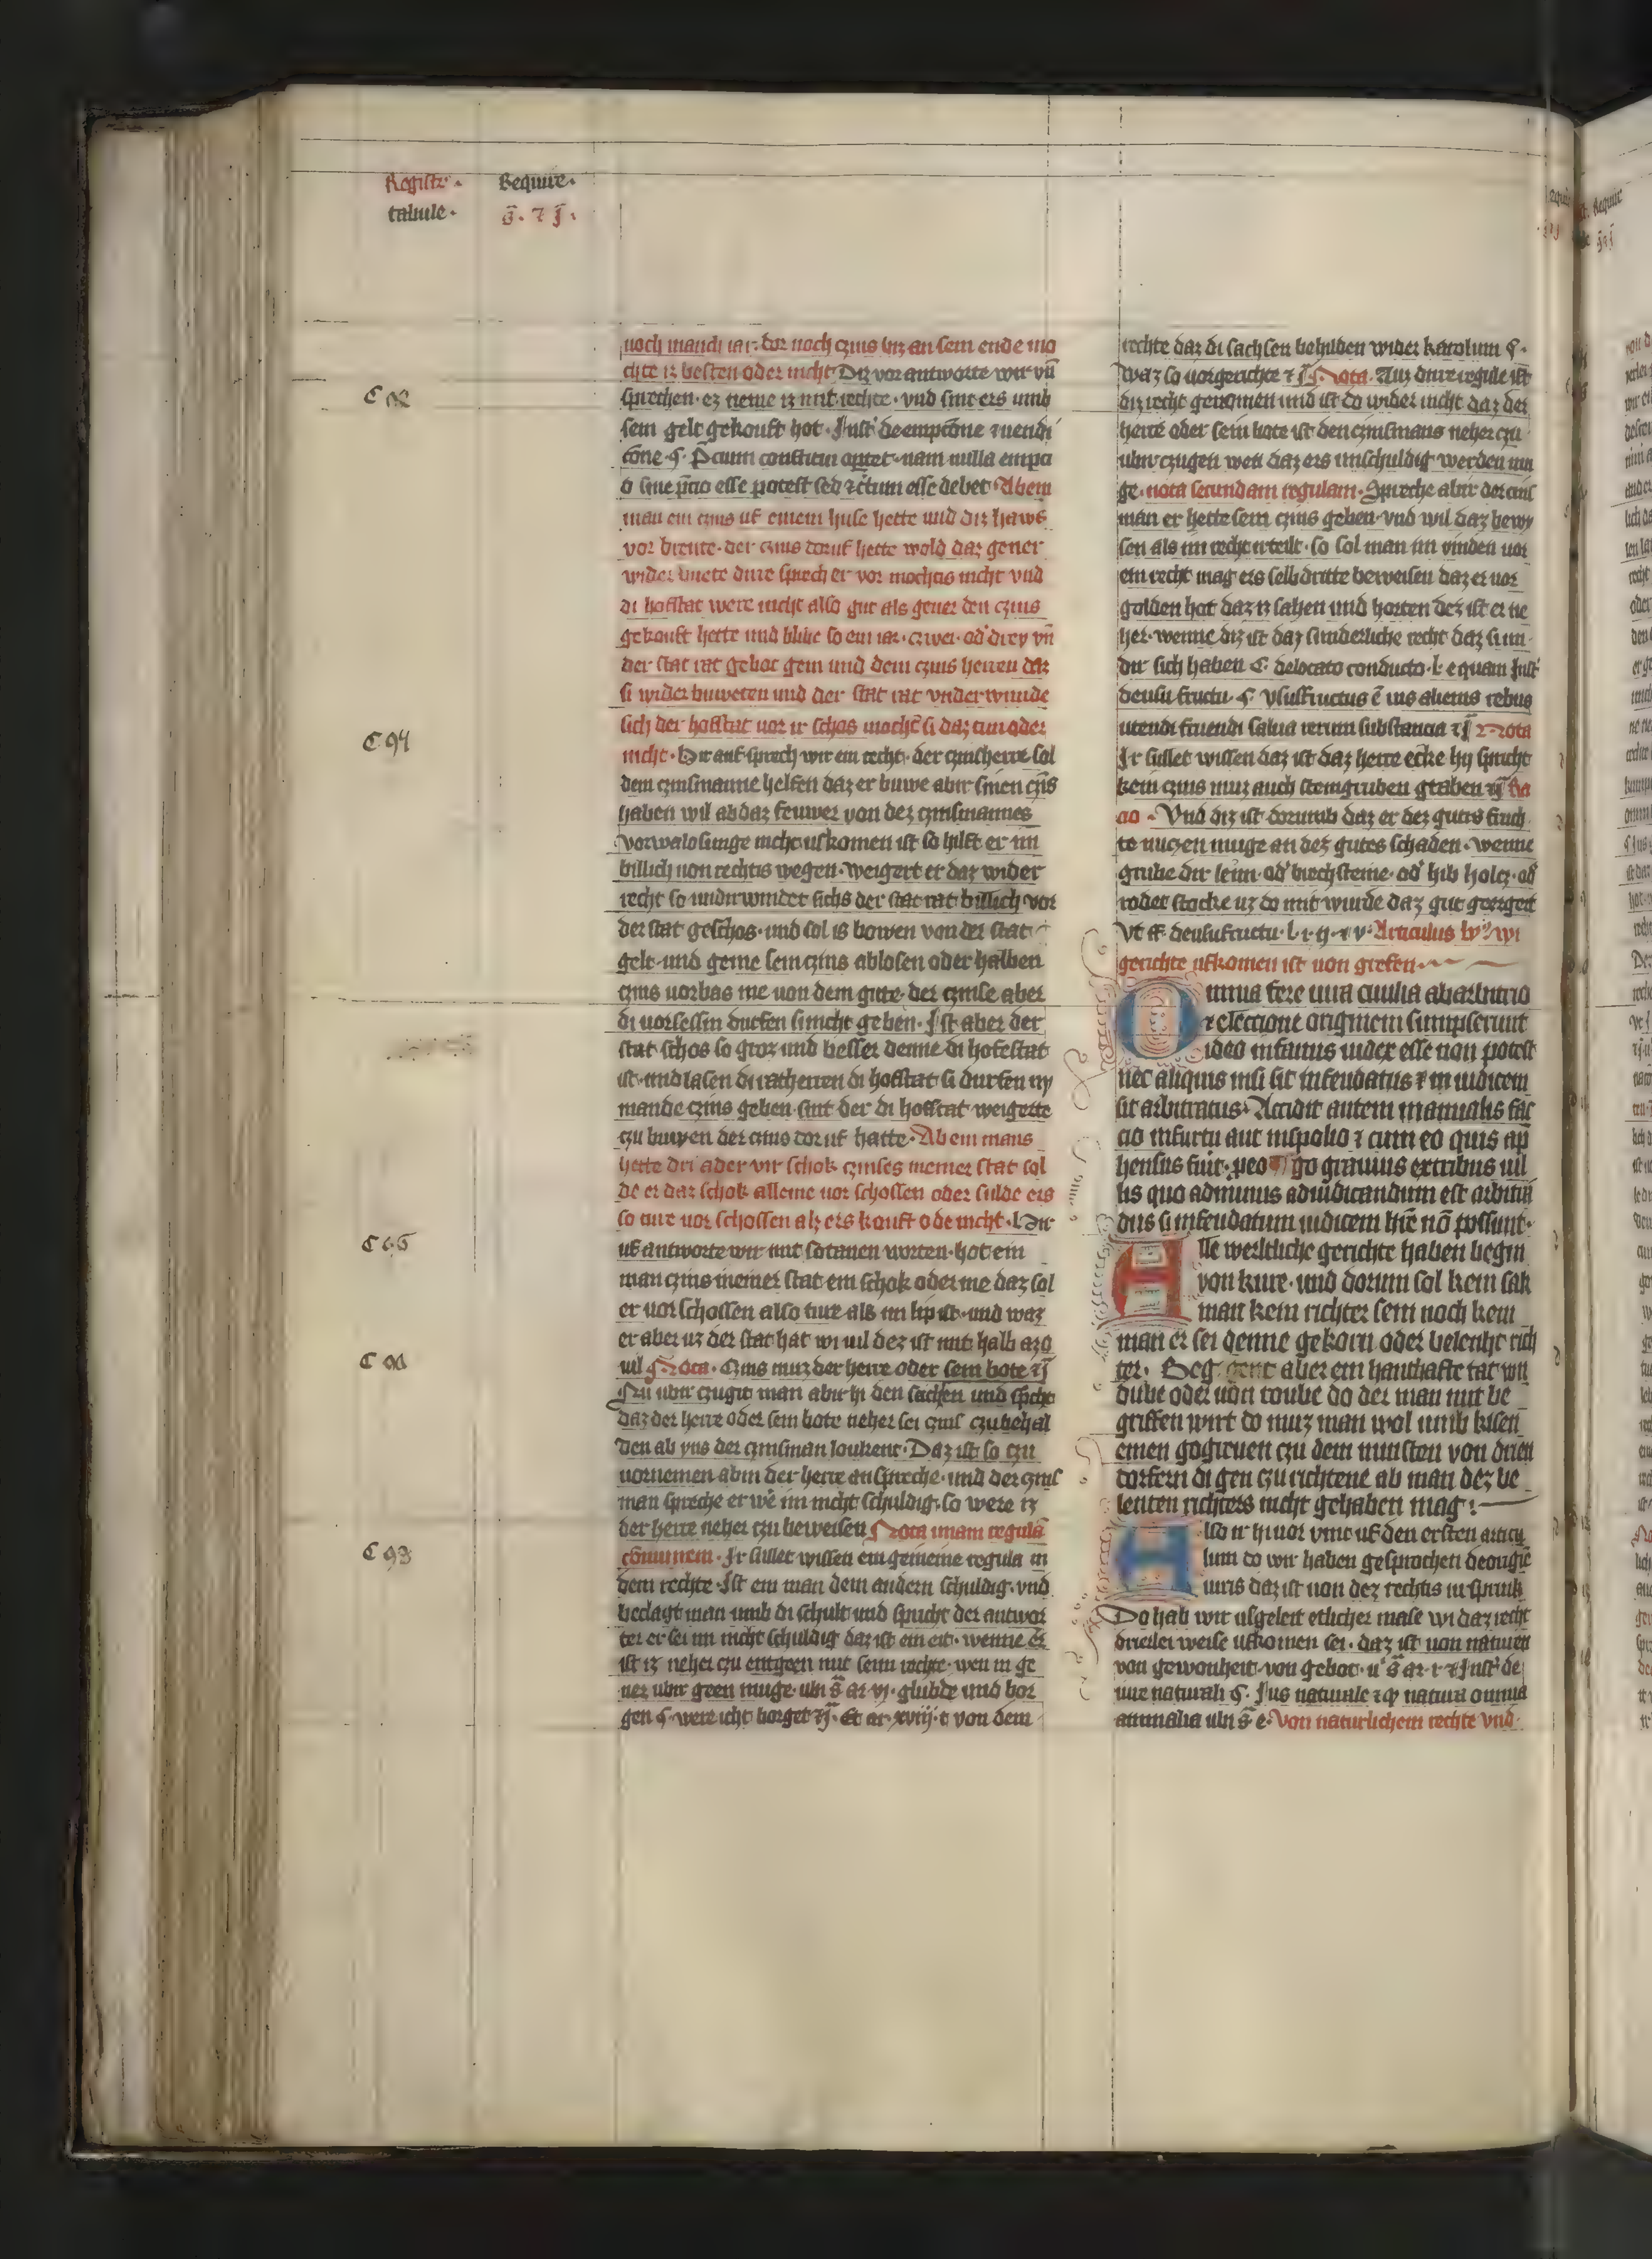 Registr·
tabule·
Require·
g̅· 7 j̅·
noch manch iar· dor noch czins biz an sein ende mo
chte is besten oder nicht Diz vor antworte wir vn̄
sprechen· ez neme iz mit rechte· vnd sint ers umb
sein gelt gekouft hot· Inst' de empcōne ⁊ uendi
cōne· §· P̄cium constitui oportet· nam nulla empci
o sine p̄cio esse potest sed ⁊ c̄tum esse debet Ab ein
man ein czins uf einem huse hette und diz haws
vor brente· der czins doruf hette wold daz gener
wider buete dirre sprech er vor mochtis nicht vnd
di hofstat were nicht also gut als gener den czins
gekouft hette und blibe so ein iar· czwei· od' drey vn̄
der stat rat gebot gein und dem czins herren daz
si wider buweten und der stat rat vnderwunde
sich der hofstat uor ir schos mochtē si daz tun oder
nicht· Dir auf sprech wir ein recht· der czinsherre sol
dem czinsmanne helfen daz er buwe abir sinen czīs
haben wil ab daz feuwer von dez czinsmannes
vorwalosunge nicht ufkomen ist so hilft er im
billich uon rechtis wegen· weigert er daz wider
recht so undirwindet sichs der stat rat billich vor
der stat geschos· und sol is bowen von der stat
gelt· und geme sein czins ablosen oder halben
czins uorbas me uon dem gute· der czinse aber
di uorsessin durfen si nicht geben· Ist aber der
stat schos so groz und besser denne di hofestat
ist· und lasen di ratherren di hofstat si durfen ny
mande czins geben· sint der di hofstat weigerte
czu buwen der czins dor uf hatte· Ab ein mans
hette dri ader vir schok czinses in einer stat sol
de er daz schok alleine uor schossen oder sulde ers
so ture uor schossen alz ers kouft ode nicht· Dir
uf antworte wir mit sotanen worten· hot ein
man czins in einer stat ein schok oder me daz sol
er uor schossen also ture als im lip ist· und waz
er aber uz der stat hat wi uil dez ist mit halb azo
uil Nota· Czins muz der herre oder sein bote ⁊c̄
Nu ubir czugit man abir in den sachen und sp̄cht
daz der herre oder sein bote neher sei czins czu behal
den ab yns der czinsman loukent· Daz ist so czu
uornemen abin der herre anspreche· und der czins
man spreche er wē im nicht schuldig· so were iz
der herre neher czu beweisen Nota unam regulā
cōmunem· Ir sullet wissen ein gemeine regula in
dem rechte· Ist ein man dem andern schuldig· vnd
beclagt man umb di schult und spricht der antwor
ter er sei im nicht schuldig daz ist ein eit· wenne er
ist iz neher czu entgeen mit seim rechte· wen in ge
ner ubir geen muge· ubi s̄ ar· vj· glubde und bor
gen §· were icht borget ⁊c̄· Et ar· xviij· t von dem
rechte daz di sachsen behilden wider karolum §·
Waz so uorgerichte ⁊c̄ Nota· Auz dirre regule ist
diz recht genomen und ist do wider nicht daz der
herre oder sein bote ist den czinsmans neher czu
ubir czugen wen daz ers unschuldig werden mu
ge· nota secundam regulam· Spreche abir der czins
man er hette sein czins geben· vnd wil daz bewy
sen als im recht irteilt· so sol man im vinden uor
ein recht mag ers selbdritte beweisen daz er uor
golden hot daz iz sahen und horten dez ist er ne
her· wenne diz ist daz sunderliche recht daz si un
dir sich haben C· de locato conducto· l· equam Inst'
de usu fructu· §· Vsusfructus ē ius alienis rebus
utendi fruendi salua rerum substancia ⁊c̄ Nota
Ir sullet wissen daz ist daz herre ecke hy spricht
kein czins muz auch steingruben graben ⁊c̄ Ra
cio· Vnd diz ist dorumb daz er dez gutis fruch
te nuczen muge an dez gutes schaden· wenne
grube dir leim· od' brech steine· od' hib holcz· od'
rodet stocke uz do mit wurde daz gut georgert
Vt ff· de usufructu· l· i· ij· ⁊ v· Articulus lv⁹ wi
gerichte ufkomen ist uon grefen
Omnia fere iura ciuilia ab arbitrio
⁊ eleccione originem sumpserunt
ideo infamus iudex esse non potest
nec aliquis nisi sit infeudatus ⁊ in iudicem
sit arbitratus· Accidit autem manualis fac
cio in furtu aut in spolio ⁊ cum eo quis ap̄
hensus fuit· p eo go grauius ex tribus uil
lis quo ad minus ad iudicandum est arbitrā
dus si infeudatum iudicem hr̄e nō possunt·
Alle werltliche gerichte haben begin
von kure· und dorum sol kein sak
man kein richter sein noch kein
man er sei denne gekorn oder belenht rich
ter· Beg gent aber ein hanthafte tat um
dube oder uon roube do der man mit be
griffen wirt do muz man wol umb kisen
einen gogreuen czu dem minsten von drien
dorfern di gen czu richtene ab man dez be
lenten richters nicht gehaben mag:
Also ir hi uor vint uf den ersten articu
lum do wir haben gesprochen de origīe
iuris daz ist uon dez rechtis ursprunk
Do hab wir usgeleit etlicher mase wi daz recht
drierlei weise ufkomen sei· daz ist uon naturen
von gewonheit von gebot· u' s̄ ar· i· ⁊ Inst' de
iure naturali §· Ius naturale ⁊ qꝫ natura omnia
animalia ubi s̄ e· Von naturlichem rechte vnd
C 94
C 93